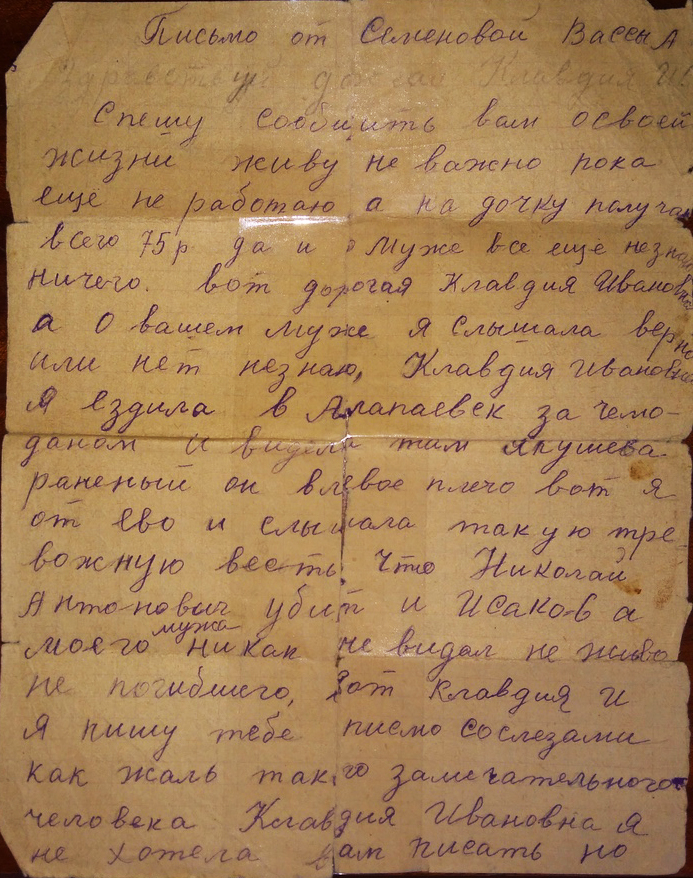 Письмо от Семеновой Вассы А
Здравствуй дорогая Клавдия И
Спешу сообщить вам освоей
жизни живу не важно пока
еще не работаю а на дочку получаю
всего 75р да и о муже все еще незнаю
ничего. вот дорогая Клавдия Ивановна
а о вашем муже я слышала верно
или нет незнаю, Клавдия Ивановна
Я ездила в Алапаевск за чемо-
даном и видела там якушева
раненый он влевое плечо вот я
от ево и слышала такую тре
вожную весть что Николай
Антонович убит и Исаков а
моего мужа никак не видал не живо
не погибшего, вот Клавдия И
Я пишу тебе писмо сослезами
как жаль такого замечательного
человека Клавдия Ивановна я
не хотела вам писать но